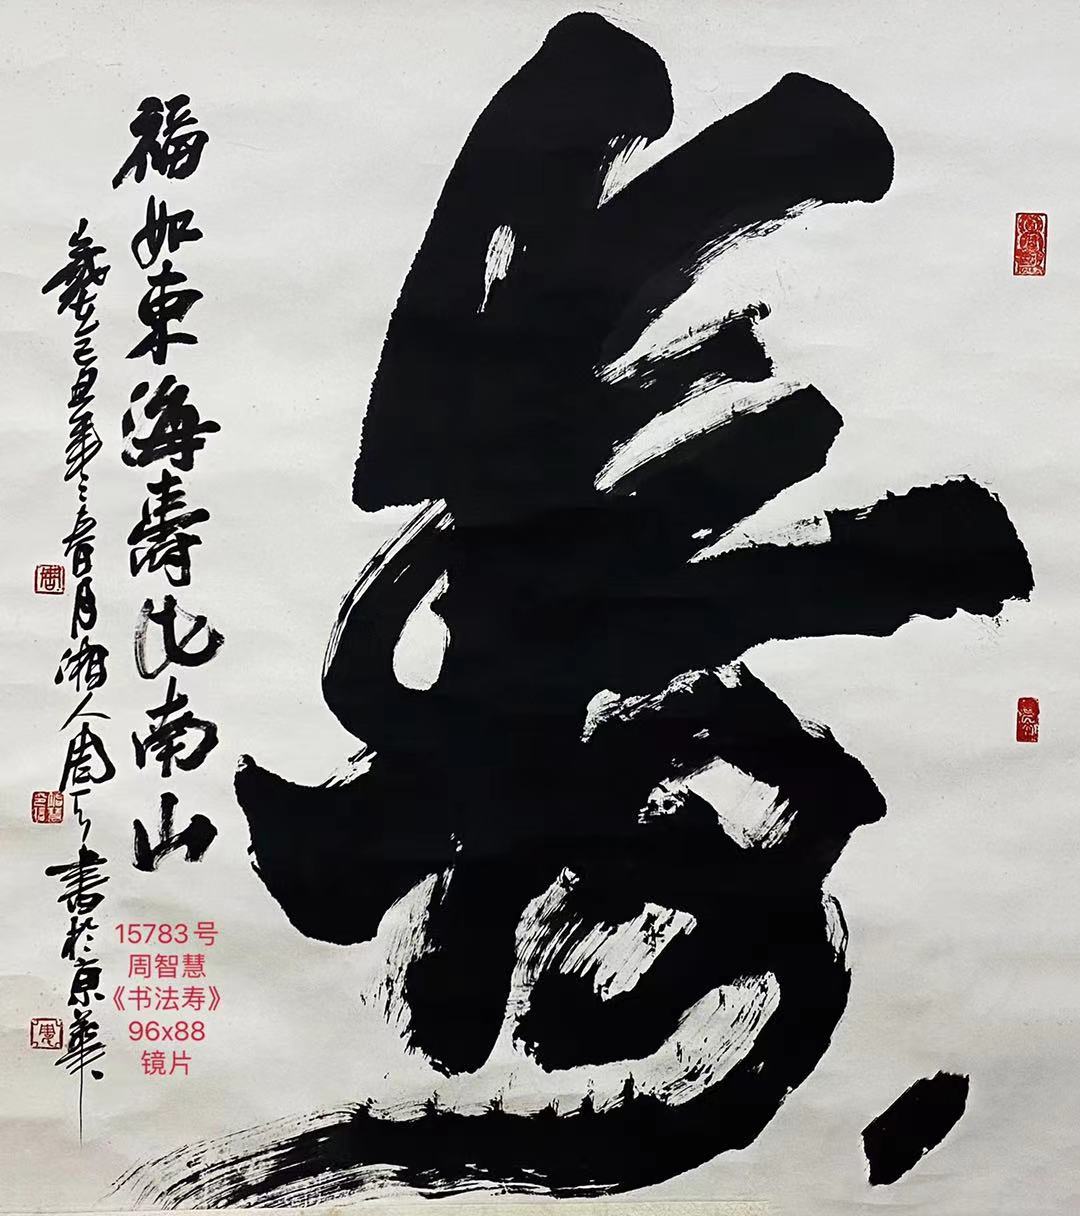 壽
福如東海壽比南山
歲在己丑年之春月湘人周
書於京華
15783号
周智慧
《书法寿》
96x88
镜片